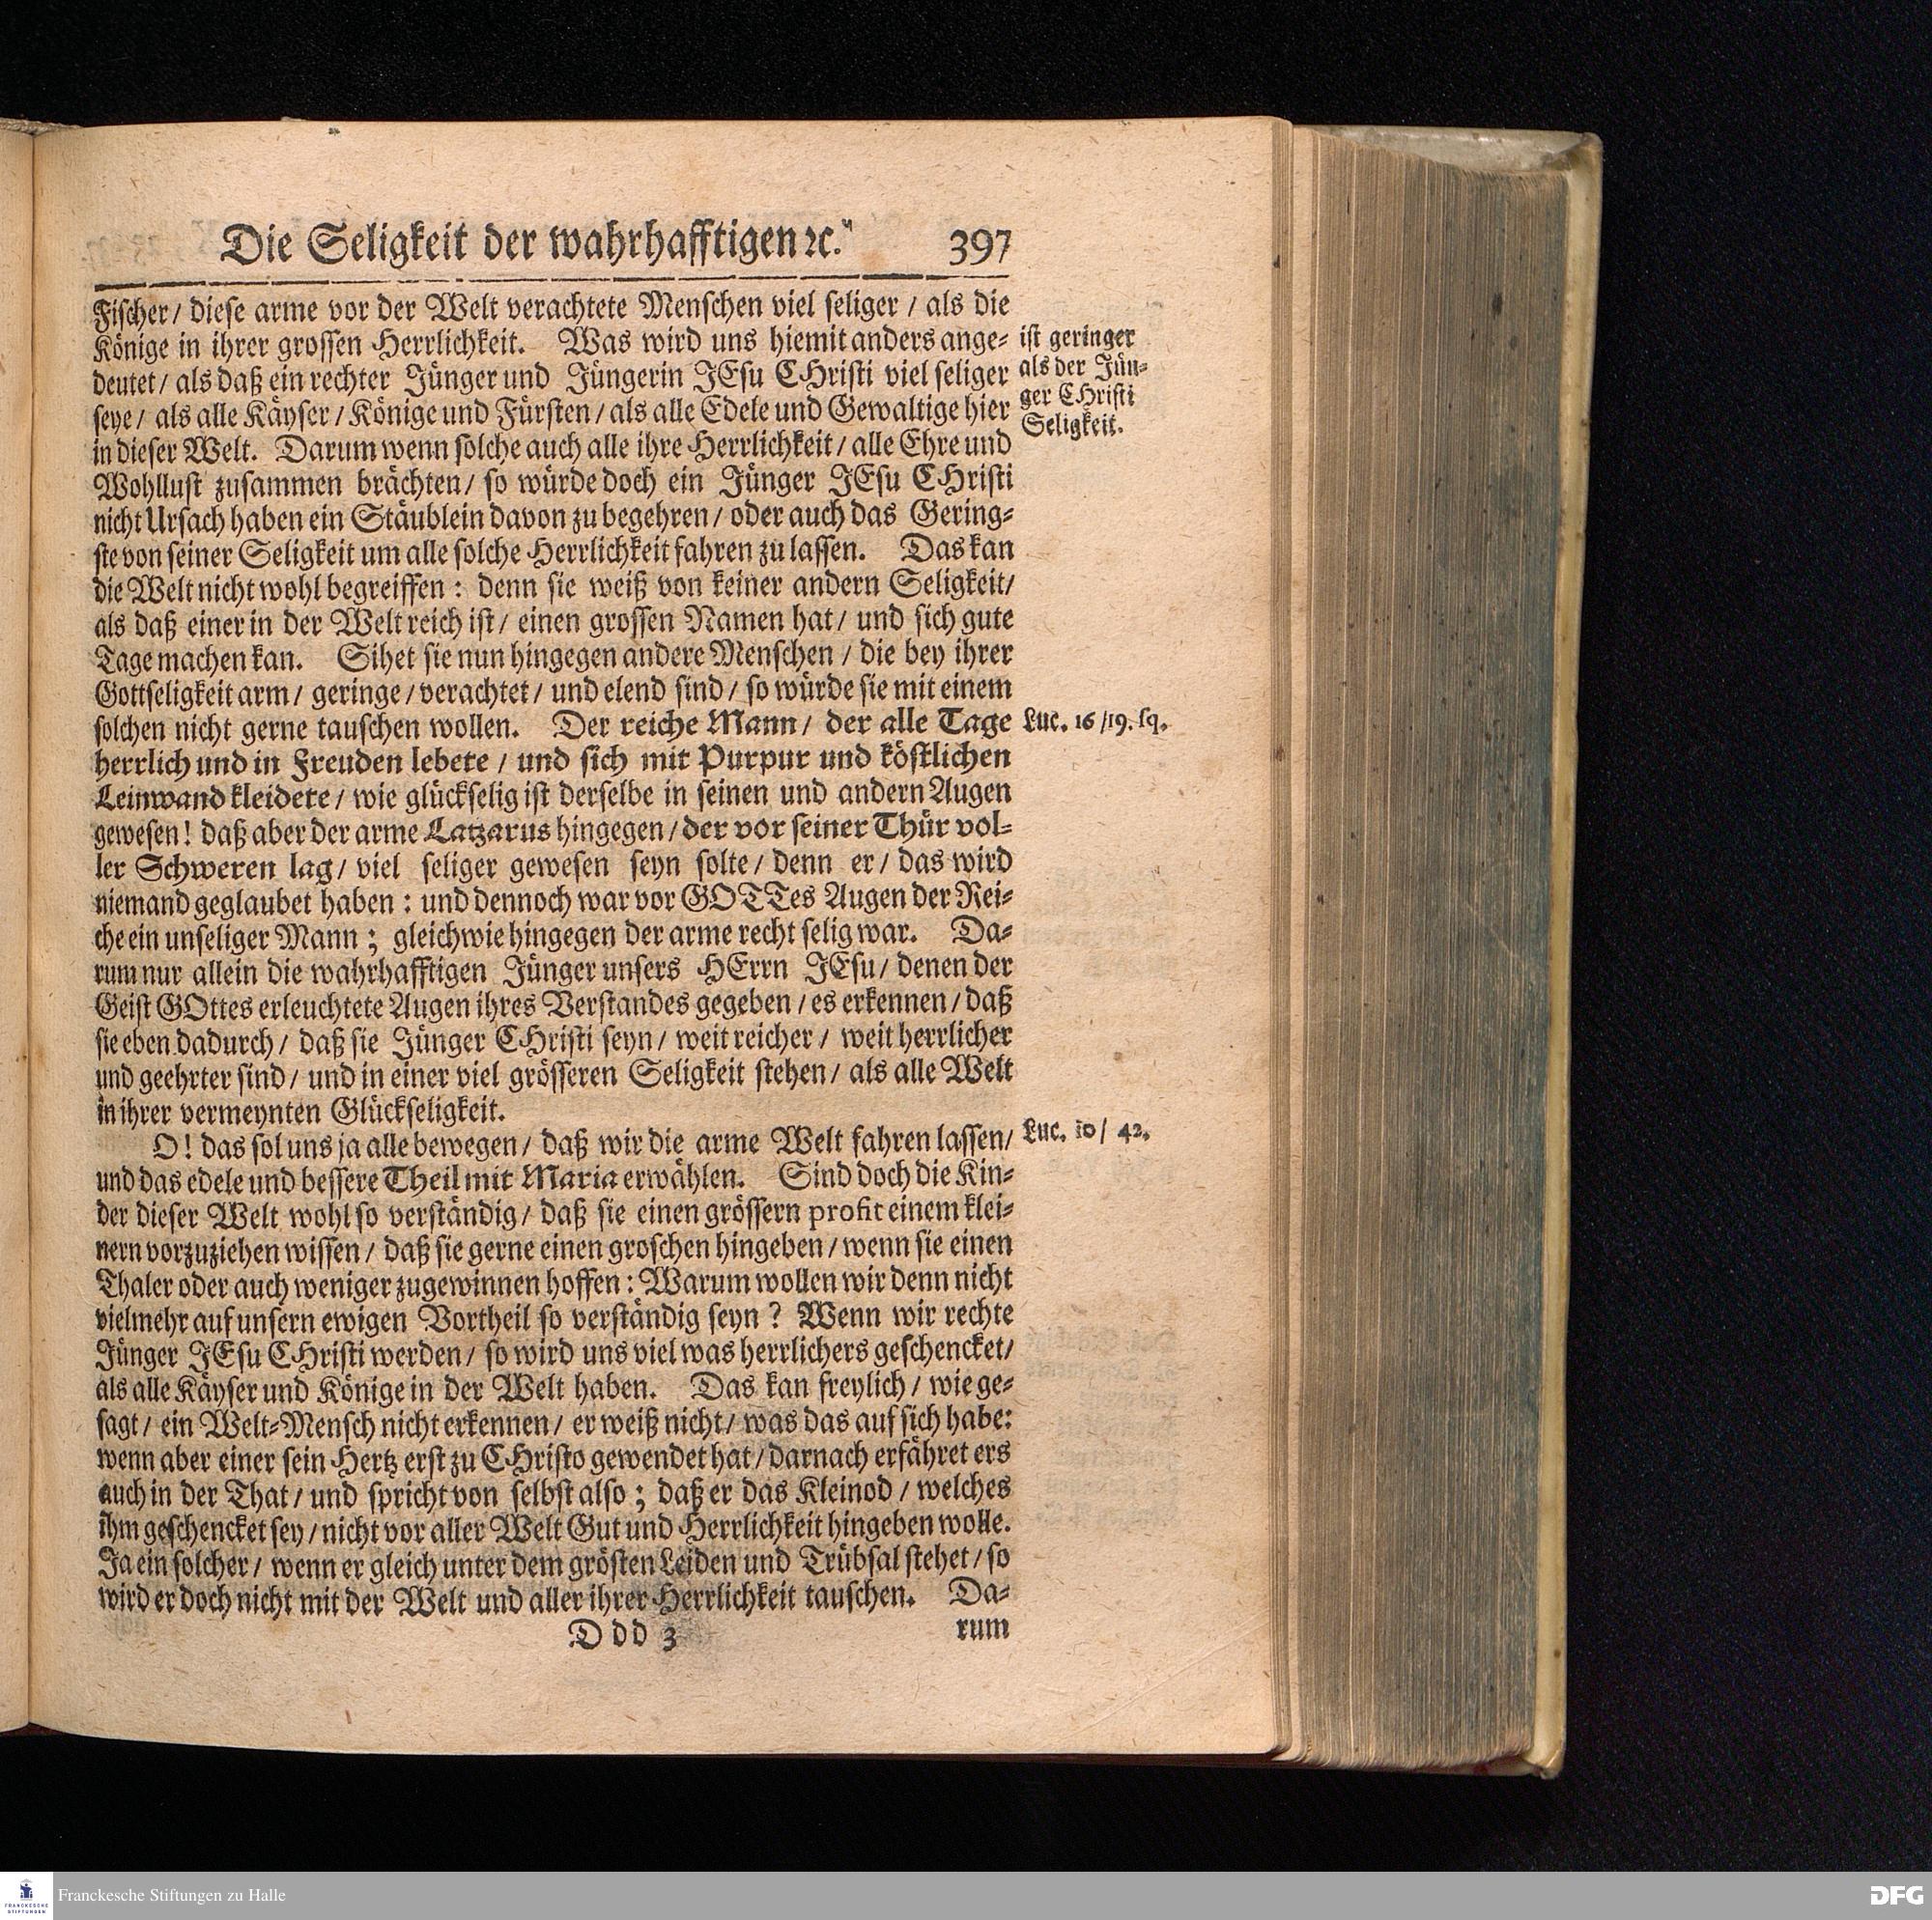 Die Seligkeit der wahrhafftigen ꝛc. 397
Fischer / diese arme vor der Welt verachtete Menschen viel seliger / als die
Könige in ihrer grossen Herrlichkeit. Was wird uns hiemit anders ange-
deutet / als daß ein rechter Jünger und Jüngerin JEsu CHristi viel seliger
seye / als alle Käyser / Könige und Fürsten / als alle Edele und Gewaltige hier
in dieser Welt. Darum wenn solche auch alle ihre Herrlichkeit / alle Ehre und
Wohllust zusammen brächten / so würde doch ein Jünger JEsu CHristi
nicht Ursach haben ein Stäublein davon zu begehren / oder auch das Gering-
ste von seiner Seligkeit um alle solche Herrlichkeit fahren zu lassen. Das kan
die Welt nicht wohl begreiffen : denn sie weiß von keiner andern Seligkeit /
als daß einer in der Welt reich ist / einen grossen Namen hat / und sich gute
Tage machen kan. Sihet sie nun hingegen andere Menschen / die bey ihrer
Gottseligkeit arm / geringe / verachtet / und elend sind / so würde sie mit einem
solchen nicht gerne tauschen wollen. Der reiche Mann / der alle Tage
herrlich und in Freuden lebete / und sich mit Purpur und köstlichen
Leinwand kleidete / wie glückselig ist derselbe in seinen und andern Augen
gewesen! daß aber der arme Latzarus hingegen / der vor seiner Thür vol-
ler Schweren lag / viel seliger gewesen seyn solte / denn er / das wird
niemand geglaubet haben : und dennoch war vor GOTTes Augen der Rei-
che ein unseliger Mann ; gleichwie hingegen der arme recht selig war. Da-
rum nur allein die wahrhafftigen Jünger unsers HErrn JEsu / denen der
Geist GOttes erleuchtete Augen ihres Verstandes gegeben / es erkennen / daß
sie eben dadurch / daß sie Jünger CHristi seyn / weit reicher / weit herrlicher
und geehrter sind / und in einer viel grösseren Seligkeit stehen / als alle Welt
in ihrer vermeynten Glückseligkeit.
O! das sol uns ja alle bewegen / daß wir die arme Welt fahren lassen /
und das edele und bessere Theil mit Maria erwählen. Sind doch die Kin-
der dieser Welt wohl so verständig / daß sie einen grössern profit einem klei-
nern vorzuziehen wissen / daß sie gerne einen groschen hingeben / wenn sie einen
Thaler oder auch weniger zugewinnen hoffen : Warum wollen wir denn nicht
vielmehr auf unsern ewigen Vortheil so verständig seyn ? Wenn wir rechte
Jünger JEsu CHristi werden / so wird uns viel was herrlichers geschencket /
als alle Käyser und Könige in der Welt haben. Das kan freylich / wie ge-
sagt / ein Welt-Mensch nicht erkennen / er weiß nicht / was das auf sich habe:
wenn aber einer sein Hertz erst zu CHristo gewendet hat / darnach erfähret ers
auch in der That / und spricht von selbst also ; daß er das Kleinod / welches
ihm geschencket sey / nicht vor aller Welt Gut und Herrlichkeit hingeben wolle.
Ja ein solcher / wenn er gleich unter dem grösten Leiden und Trübsal stehet / so
wird er doch nicht mit der Welt und aller ihrer Herrlichkeit tauschen. Da-
Ddd 3 rum
ist geringer
als der Jün-
ger CHristi
Seligkeit.
Luc. 16 / 19. sq.
Luc. 10 / 42.
Franckesche Stiftungen zu Halle
FRANCKESCHE
STIFTUNGEN
DFG